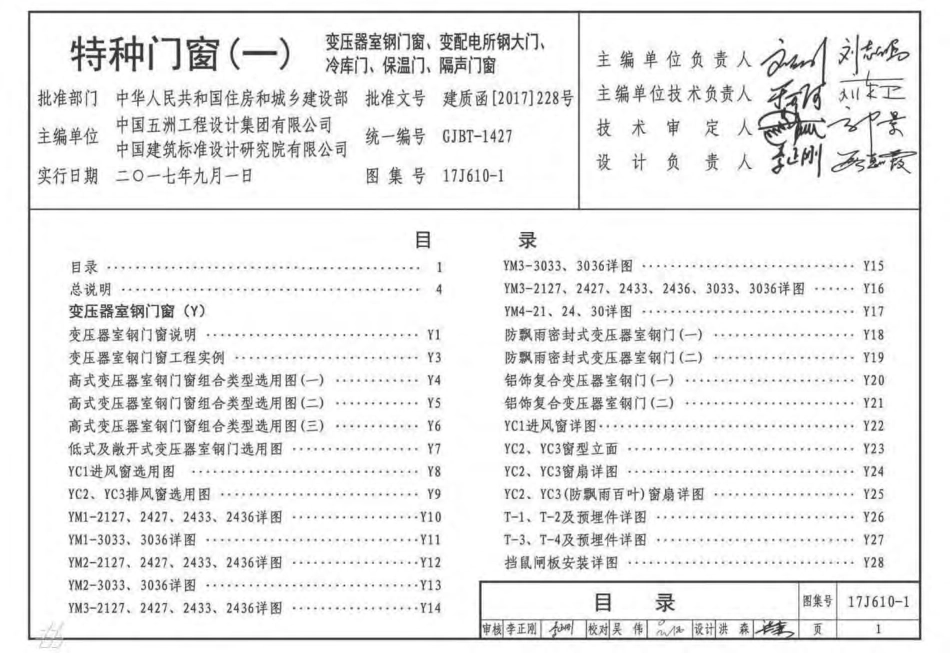 特种门窗(一)
变压器室钢门窗、变配电所钢大门、
冷库门、保温门、隔声门窗
批准部门 中华人民共和国住房和城乡建设部 批准文号 建质函[2017]228号
主编单位 中国五洲工程设计集团有限公司
中国建筑标准设计研究院有限公司
统一编号 GJBT-1427
实行日期 二〇一七年九月一日 图集号 17J610-1
主编单位负责人
主编单位技术负责人
技术审定人
设计负责人 李正刚
目录
目录 ⋯⋯ 1
总说明 ⋯⋯ 4
变压器室钢门窗(Y)
变压器室钢门窗说明 ⋯⋯ Y1
变压器室钢门窗工程实例 ⋯⋯ Y3
高式变压器室钢门窗组合类型选用图(一) ⋯⋯ Y4
高式变压器室钢门窗组合类型选用图(二) ⋯⋯ Y5
高式变压器室钢门窗组合类型选用图(三) ⋯⋯ Y6
低式及敞开式变压器室钢门选用图 ⋯⋯ Y7
YC1进风窗选用图 ⋯⋯ Y8
YC2、YC3排风窗选用图 ⋯⋯ Y9
YM1-2127、2427、2433、2436详图 ⋯⋯ Y10
YM1-3033、3036详图 ⋯⋯ Y11
YM2-2127、2427、2433、2436详图 ⋯⋯ Y12
YM2-3033、3036详图 ⋯⋯ Y13
YM3-2127、2427、2433、2436详图 ⋯⋯ Y14
YM3-3033、3036详图 ⋯⋯ Y15
YM3-2127、2427、2433、2436、3033、3036详图 ⋯⋯ Y16
YM4-21、24、30详图 ⋯⋯ Y17
防飘雨密封式变压器室钢门(一) ⋯⋯ Y18
防飘雨密封式变压器室钢门(二) ⋯⋯ Y19
铝饰复合变压器室钢门(一) ⋯⋯ Y20
铝饰复合变压器室钢门(二) ⋯⋯ Y21
YC1进风窗详图 ⋯⋯ Y22
YC2、YC3窗型立面 ⋯⋯ Y23
YC2、YC3窗扇详图 ⋯⋯ Y24
YC2、YC3(防飘雨百叶)窗扇详图 ⋯⋯ Y25
T-1、T-2及预埋件详图 ⋯⋯ Y26
T-3、T-4及预埋件详图 ⋯⋯ Y27
挡鼠闸板安装详图 ⋯⋯ Y28
目录 图集号 17J610-1
审核 李正刚 校对 吴伟 设计 洪森 页 1